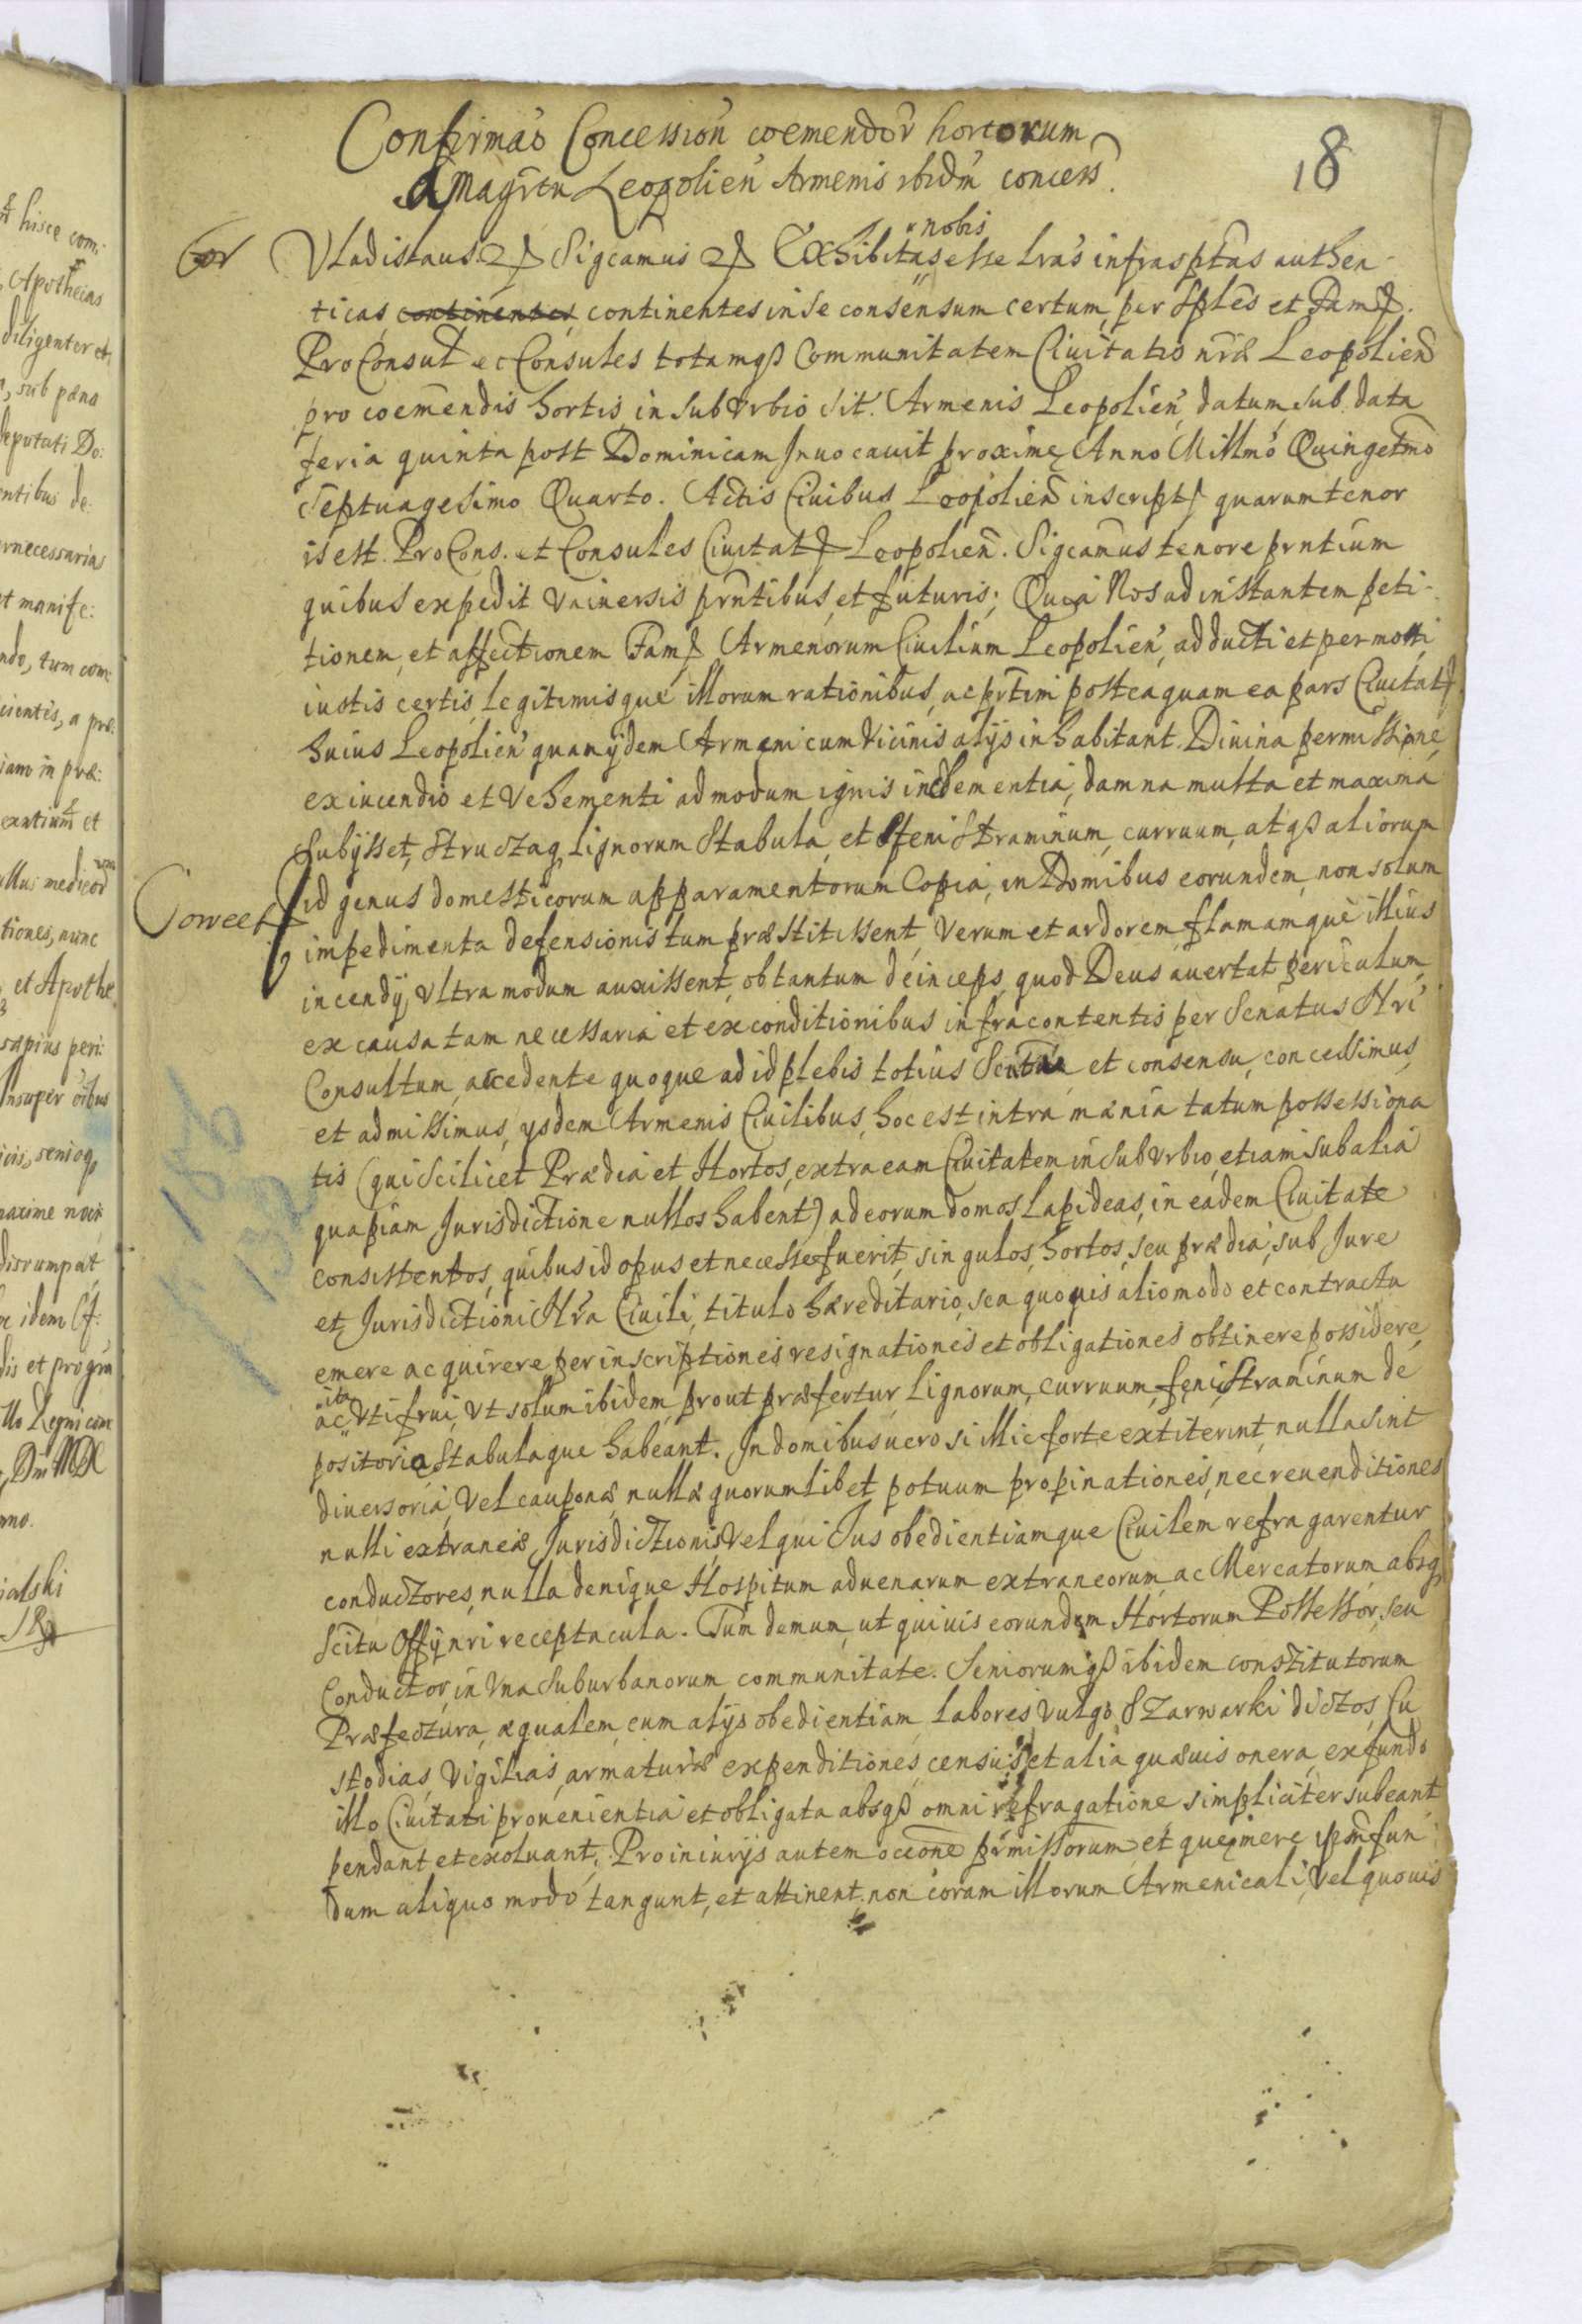 Confirmao Concession coemendor hortorum
a Magrtu Leopolien Armenis ibidm concess.
18
Cor
nobis
Vladislaus Sigcamus Exhibitas esse lras infrasptas authen-
ticas continentes continentes in se consensum certum, per Sples et Fam.
ProConsul et Consules totamqs Communitatem Ciuitatis nræ Leopolien
pro coemendis hortis in subVrbio sit. Armenis Leopolien, datum sub data
feria quinta post Dominicam Inuocauit proxime Anno Millmo Quingetmo
Septuagesimo Quarto. Actis Ciuibus Leopolien inscript quarum tenor
is est. ProCons. et Consules Ciuitat Leopolien. Sigcamus tenore prntium
quibus expedit Vniuersis prntibus, et futuris; Quia Nos ad instantem peti-
tionem, et affectionem Fam Armenorum Ciuilium Leopolien, adducti et permoti
iustis certis, legitimisque illorum rationibus, ac prtim posteaquam ea pars Ciuitat
huius Leopolien quam ijdem Armeni cum Vicinis alijs inhabitant Diuina permissione
ex incendio et Vehementi admodum ignis inclementia, damna multa et maxima
Subijsset, Structaq lignorum Stabula, et feni Straminum, curruum, atqs aliorum
Correct
id genus domesticorum apparamentorum Copia, in Domibus eorundem, non solum
impedimenta defensionis tum præstitissent, Verum et ardorem flamamque illius
incendij, Vltra modum auxissent, ob tantum deinceps, quod Deus auertat periculum,
ex causa tam necessaria et ex conditionibus infra contentis per Senatus Nri
Consultum, accedente quoque ad id plebis totius Scitu et consensu, concessimus,
et admissimus, ysdem Armenis Ciuilibus, hoc est intra mænia tatum possessiona
tis (qui Scilicet Prædia et Hortos, extra eam Ciuitatem in subVrbio, etiam sub alia
quapiam Jurisdictione nullos habent) ad eorum domos lapideas, in eadem Ciuitate
consistentes, quibus id opus et necesse fuerit, singulos, hortos, seu prædia, sub Jure
et Jurisdictioni Nra Ciuili, titulo hæreditario, seu quouis alio modo et contractu
emere acquirere per inscriptiones resignationes et obligationes obtinere possidere
ita
ac Vti frui, Vt solum ibidem, prout præfertur lignorum, curruum, feni, Straminum de
positoria Stabulaque habeant. In domibus uero si illic forte extiterint, nulla sint
diuersoria, Vel cauponæ nullæ quorumlibet potuum propinationes, nec reuenditiones
nulli extraneæ Jurisdictionis Vel qui Jus obedientiamque Ciuilem refragarentur
conductores, nulla denique Hospitum aduenarum extraneorum, ac Mercatorum, absq
scitu Offij nri receptacula. Tum demum, ut quiuis eorundem Hortorum Possessor, seu
Conductor, in Vna Suburbanorum communitate. Seniorumqs ibidem constitutorum
Præfectura, æqualem, cum alijs obedientiam, labores Vulgo Szarwarki dictos, Cu
stodias, Vigilias, armaturæ expenditiones, census, et alia quæuis onera, ex fundo
illo Ciuitati prouenientia et obligata absqs omni refragatione simpliciter subeant
pendant et exoluant. Pro iniurijs autem occone prmissorum, et quę mere ipsm fun
dum aliquo modo tangunt, et attinent, non coram illorum Armenicali, Vel quouis